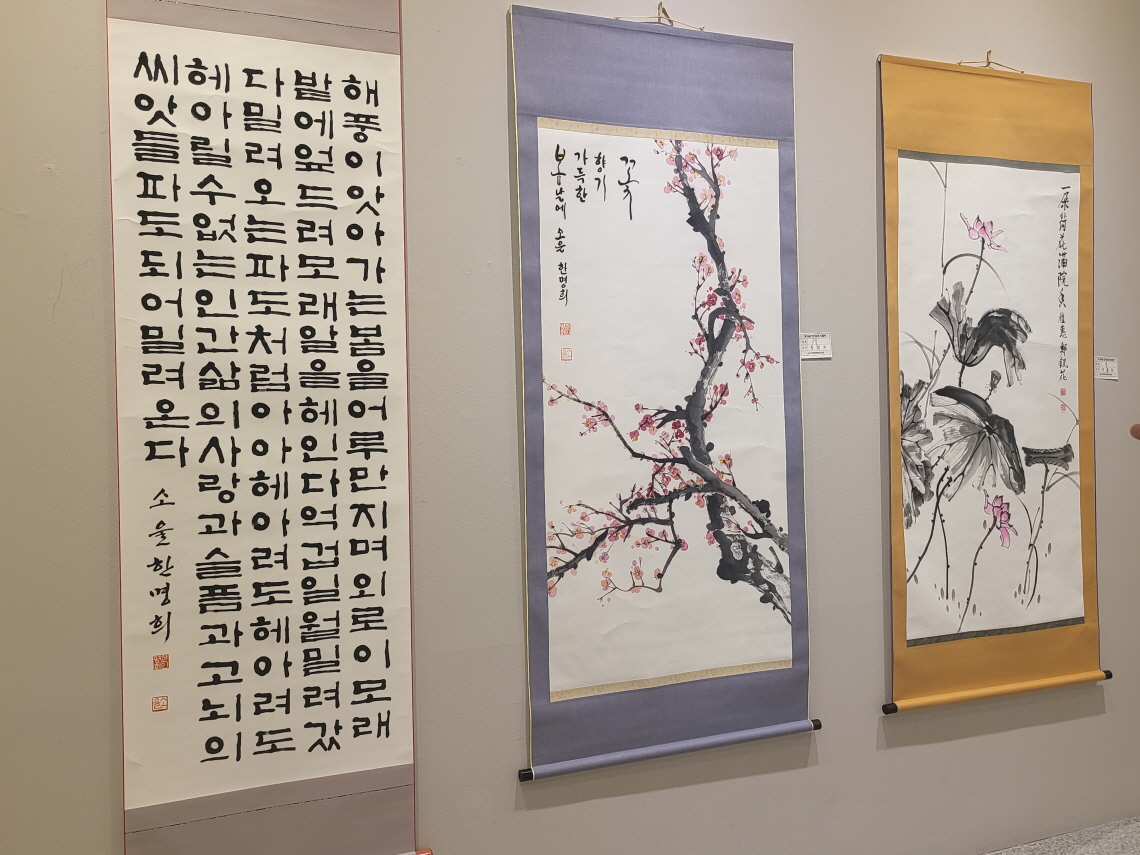 해풍이앗아가는봄을어루만지며외로이모래
밭에엎드려모래알을헤인다억겁일월밀려갔
다밀려오는파도처럼아아헤아려도헤아려도
헤아릴수없는인간삶의사랑과슬픔과고뇌의
씨앗들파도되어밀려온다 소율한명희
꽃
향기
가득한
봄날에 소율 한명희
一朶荷花滿院香 佳慧 鄭銀花